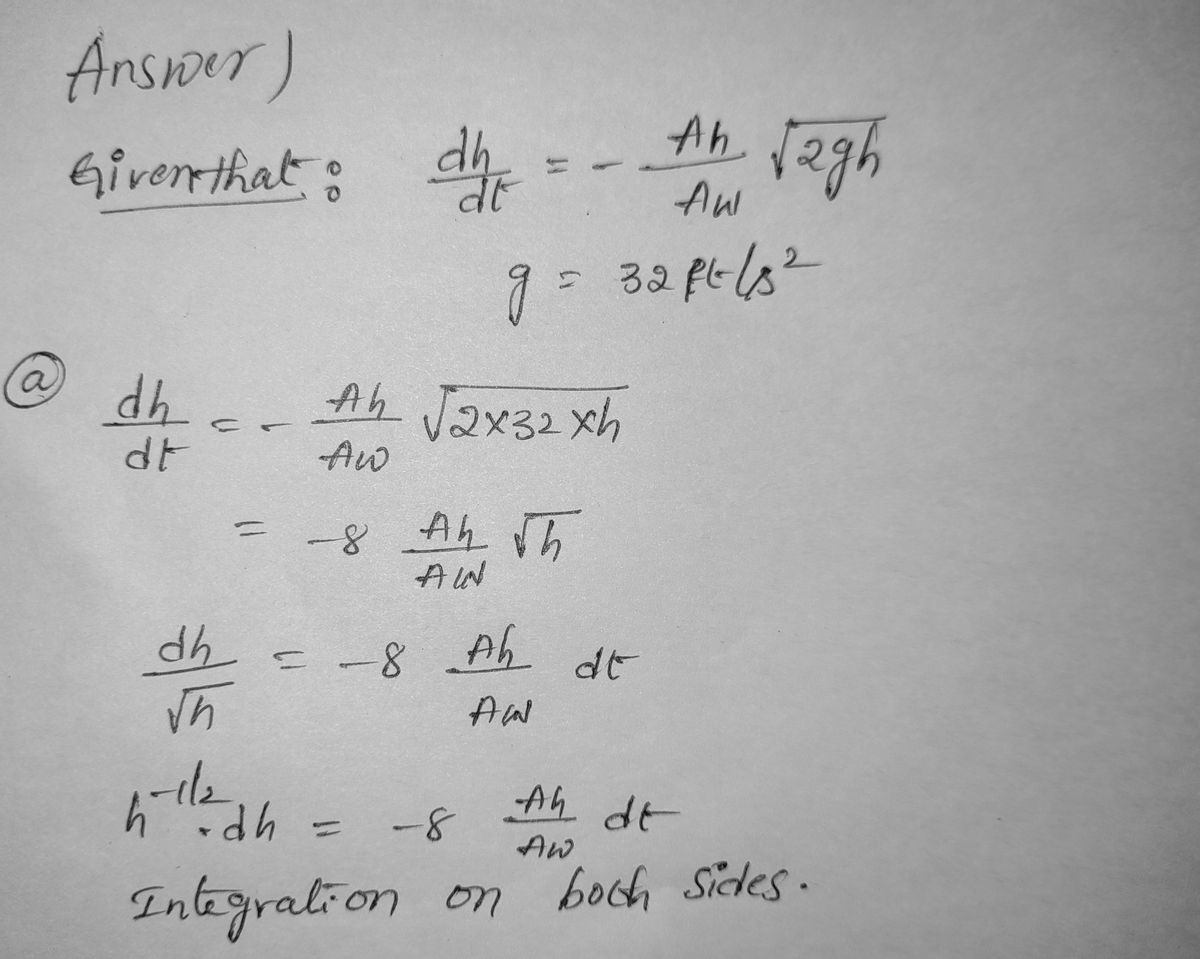 Answer)
Given that : dh/dt = - Ah/Aw √2gh
g = 32 ft/s²
ⓐ dh/dt = - Ah/Aw √2×32×h
= -8 Ah/Aw √h
dh/√h = -8 Ah/Aw dt
h^-1/2 . dh = -8 Ah/Aw dt
Integration on both sides.